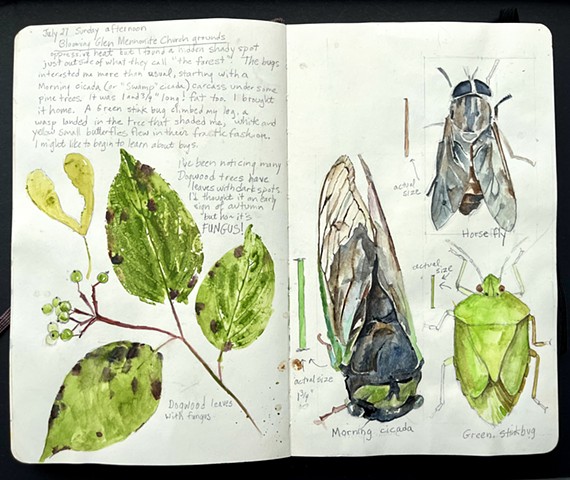 July 27, Sunday afternoon
Blooming Glen Mennonite Church grounds
oppressive heat but I found a hidden shady spot
just outside of what they call "the forest". The bugs
interested me more than usual, starting with a
Morning cicada (or "Swamp" cicada) carcass under some
pine trees. It was 1 and 3/4" long! fat too. I brought
it home. A Green stink bug climbed my leg, a
wasp landed in the tree that shaded me, white and
yellow small butterflies flew in their frantic fashion.
I might like to begin to learn about bugs.
I've been noticing many
Dogwood trees have
leaves with dark spots
I'd thought it an early
sign of autumn
but no- it's
FUNGUS!
Dogwood leaves
with fungus
actual
size
Horsefly
actual
size
actual size
1 3/4"
Morning cicada
Green stinkbug